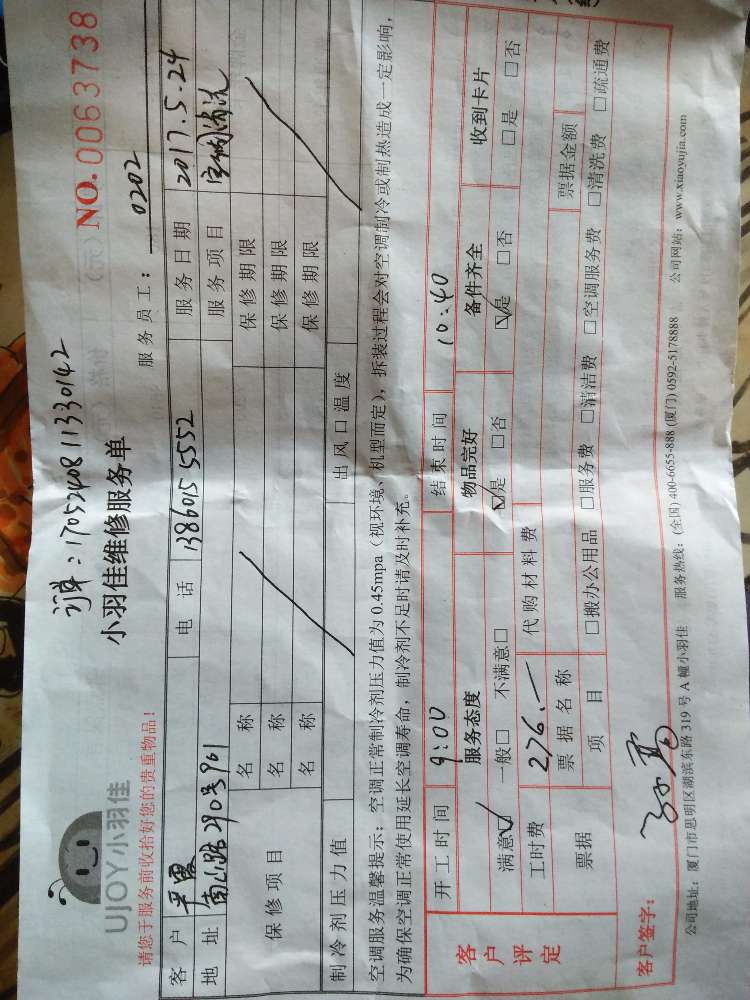 订单：1705240811330142
小羽佳维修服务单
NO.0063738
UJOY小羽佳
请您于服务前收拾好您的贵重物品！
服务员工： 0202
客户 电话 13860155552 服务日期 2017.5.24
地址 南山路290号901 服务项目 空调清洗
保修项目 名称 保修期限
名称 保修期限
名称 保修期限
制冷剂压力值 出风口温度
空调服务温馨提示：空调正常制冷剂压力值为0.45mpa（视环境、机型而定），拆装过程会对空调制冷或制热造成一定影响，
为确保空调正常使用延长空调寿命，制冷剂不足时请及时补充。
客户评定
开工时间 9:00 结束时间 10:40
服务态度 物品完好 备件齐全 收到卡片
满意☑ 一般□ 不满意□ ☑是 □否 ☑是 □否 □是 □否
工时费 276.— 代购材料费
票据 票据名称 票据金额
项目 □搬办公用品 □服务费 □清洁费 □空调服务费 □清洗费 □疏通费
客户签字：
公司地址：厦门市思明区湖滨东路319号A幢小羽佳 服务热线：(全国)400-6655-888 (厦门)0592-5178888 公司网站：www.xiaoyujia.com